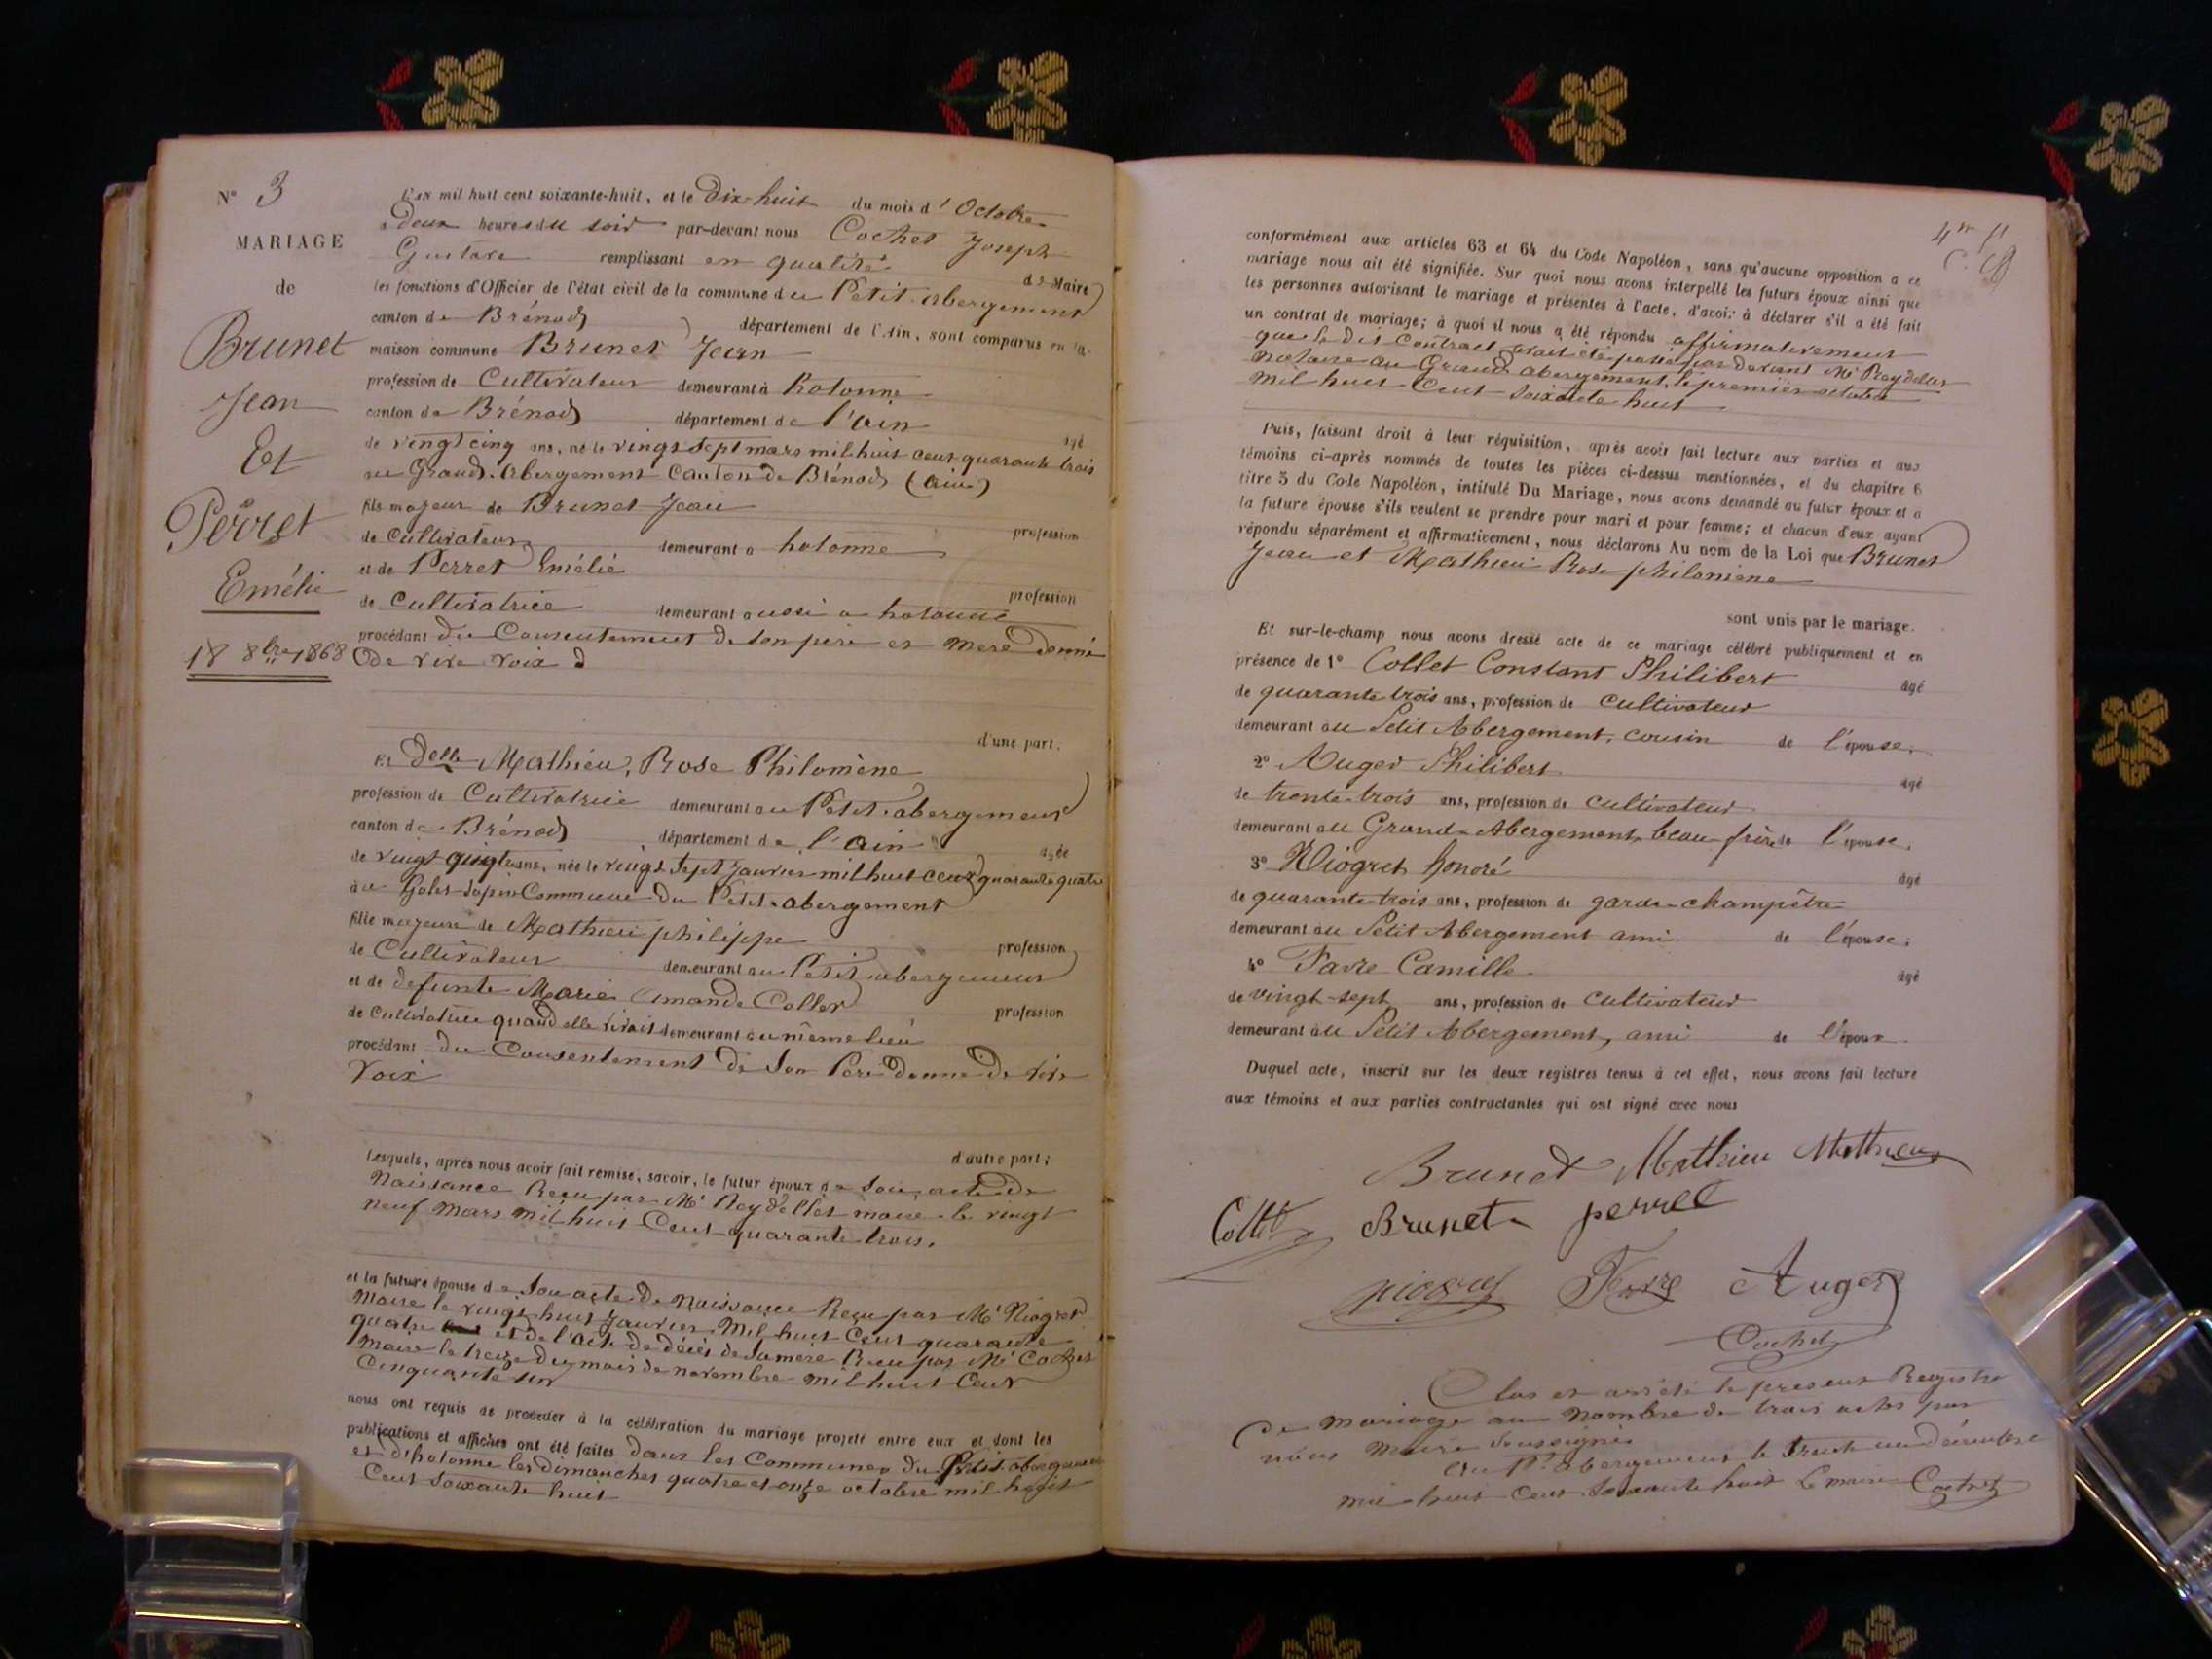 N° 3
MARIAGE
de
Brunet
Jean
Et
Perret
Emélie
18 8bre 1868
L'an mil huit cent soixante-huit, et le Dix-huit du mois d' Octobre
à Deux heures du soir par-devant nous Cochet Joseph
Gustave remplissant en qualité de Maire
les fonctions d'Officier de l'état civil de la commune du Petit-abergement
canton de Brénod département de l'Ain, sont comparus en la
maison commune Brunet Jean
profession de Cultivateur demeurant à hotonne
canton de Brénod département de l'ain
âgé
de vingt cinq ans, né le vingt sept mars mil huit cent quarante trois
au Grand-abergement Canton de Brénod (ain)
fils majeur de Brunet Jean
profession
de Cultivateur demeurant à hotonne
et de Perret Emélie
profession
de Cultivatrice demeurant aussi a hotonne
procédant du Consentement de son père et mere donné
de vive voix
d'une part.
Et Delle Mathieu, Rose Philomène
profession de Cultivatrice demeurant au Petit-abergement
canton de Brénod département de l'ain
âgée
de vingt ans, née le vingt sept Janvier mil huit cent quarante quatre
au Commune du Petit-abergement
fille majeure de Mathieu philippe
profession
de Cultivateur demeurant au Petit abergement
et de defunte Marie Amande Collet
profession
de Cultivatrice quand elle vivait demeurant au même lieu
procédant du Consentement de son Père donné de vive
voix
d'autre part;
Lesquels, après nous avoir fait remise, savoir, le futur époux de son acte de
Naissance Reçu par Mr Reydellet maire le vingt
neuf mars mil huit Cent quarante trois.
et la future épouse de Son acte de Naissance Reçu par Mr Niogret
Maire le vingt huit Janvier Mil huit Cent quarante
quatre et de l'acte de décès de sa mère Reçu par Mr Cochet
Maire le treize du mois de novembre mil huit Cent
Cinquante un
nous ont requis de procéder à la célébration du mariage projeté entre eux et dont les
publications et affiches ont été faites dans les Communes du Petit-abergement
et d'hotonne les dimanches quatre et onze octobre mil huit
Cent soixante huit
conformément aux articles 63 et 64 du Code Napoléon, sans qu'aucune opposition a ce
mariage nous ait été signifiée. Sur quoi nous avons interpellé les futurs époux ainsi que
les personnes autorisant le mariage et présentes à l'acte, d'avoir à déclarer s'il a été fait
un contrat de mariage; à quoi il nous a été répondu affirmativement
que le dit Contract avait été passé par devant Mr Reydellet
notaire au Grand abergement, le premier octobre
mil huit Cent soixante huit
Puis, faisant droit à leur réquisition, après avoir fait lecture aux parties et aux
témoins ci-après nommés de toutes les pièces ci-dessus mentionnées, et du chapitre 6
titre 5 du Code Napoléon, intitulé Du Mariage, nous avons demandé au futur époux et a
la future épouse s'ils veulent se prendre pour mari et pour femme; et chacun d'eux ayant
répondu séparément et affirmativement, nous déclarons Au nom de la Loi que Brunet
Jean et Mathieu Rose philomène
sont unis par le mariage.
Et sur-le-champ nous avons dressé acte de ce mariage célébré publiquement et en
présence de 1° Collet Constant Philibert
âgé
de quarante trois ans, profession de cultivateur
demeurant au Petit Abergement, cousin de l'épouse.
2° Auger Philibert
âgé
de trente-trois ans, profession de cultivateur
demeurant au Grand-Abergement, beau-frère de l'épouse.
3° Niogret honoré
âgé
de quarante-trois ans, profession de garde-champêtre
demeurant au Petit Abergement ami de l'épouse;
4° Favre Camille
âgé
de vingt-sept ans, profession de cultivateur
demeurant au Petit Abergement, ami de l'époux.
Duquel acte, inscrit sur les deux registres tenus à cet effet, nous avons fait lecture
aux témoins et aux parties contractantes qui ont signé avec nous
Brunet Mathieu Mathieu
Collet Brunet perret
niogret Favre Auger
Cochet
Clos et arrêté le present Registre
De mariage au Nombre de trois actes par
nous Maire soussigné
Au Pt abergement le trente un décembre
mil huit Cent soixante huit Le maire Cochet